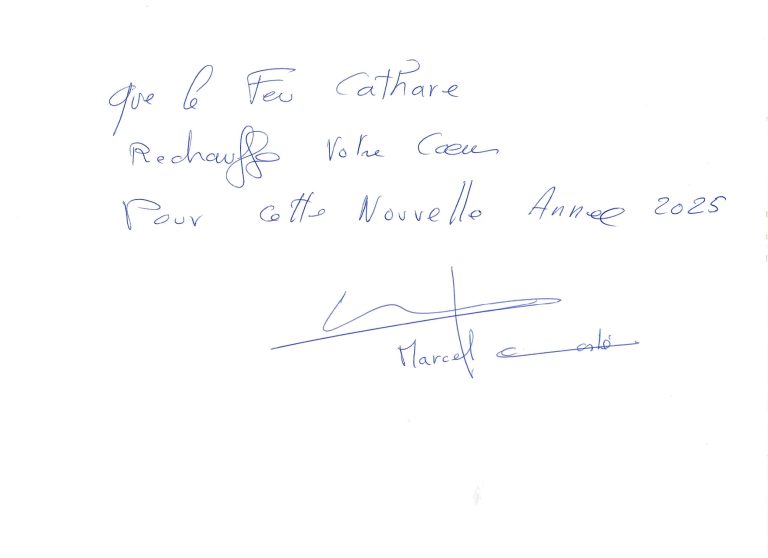 que le Feu Cathare
Rechauffe Votre Cœur
Pour cette Nouvelle Annee 2025
Marcel